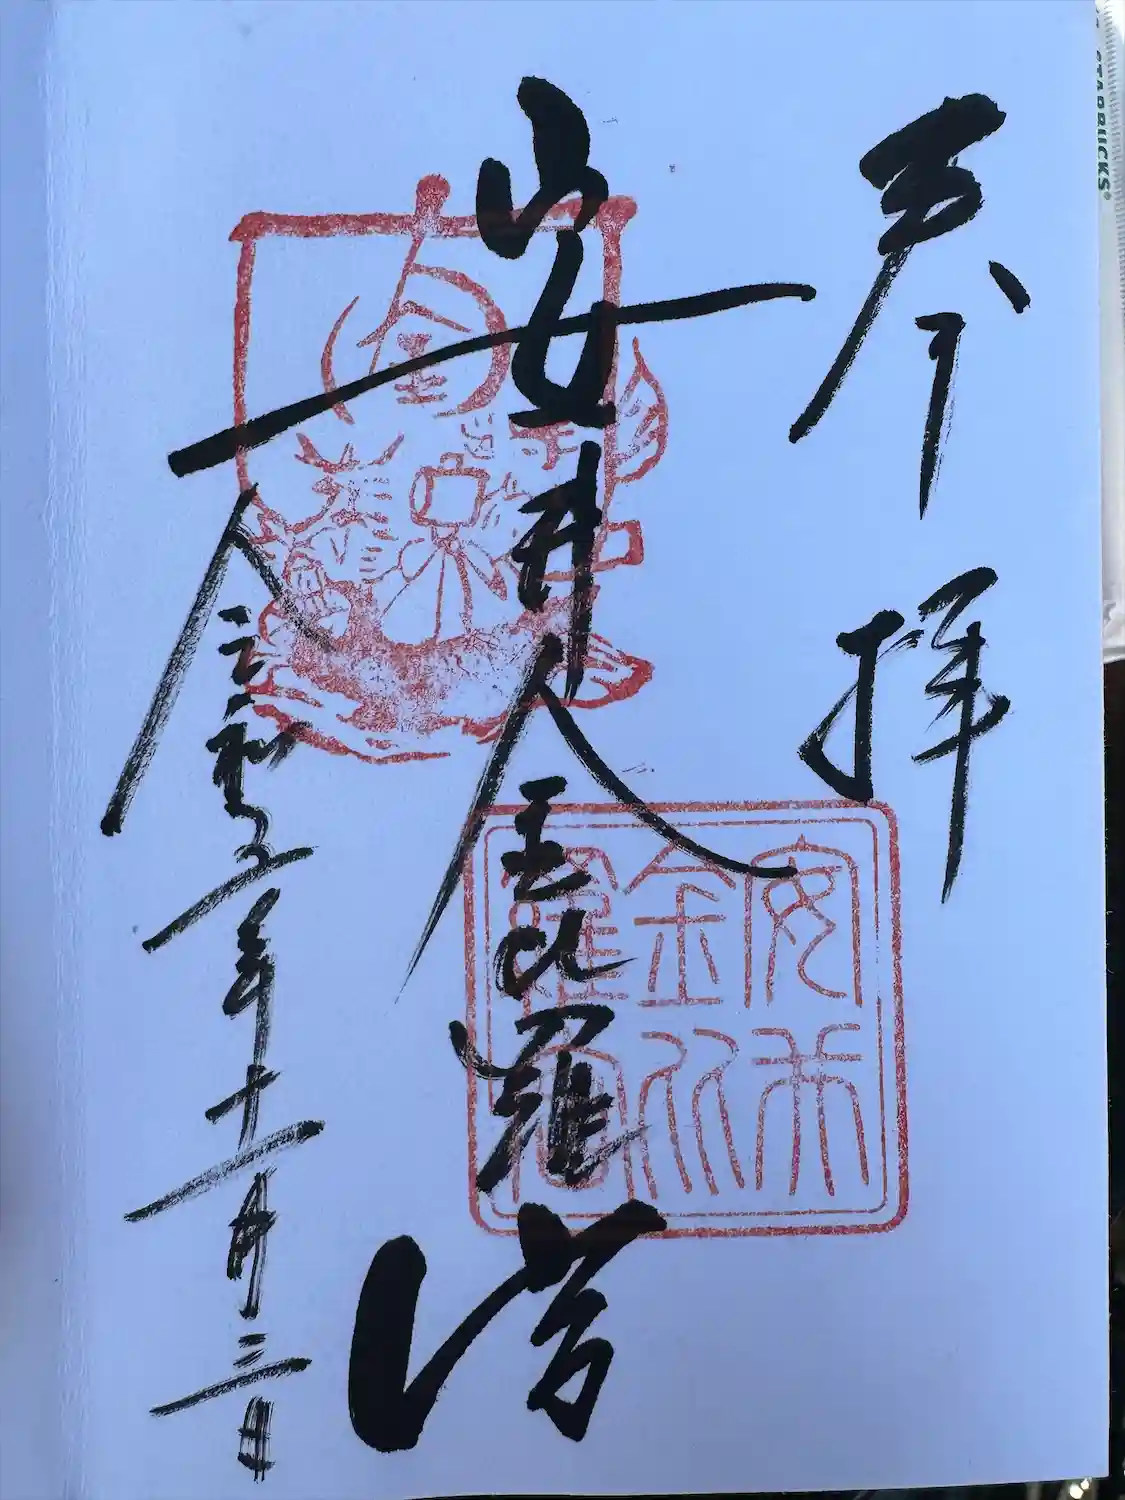 奉拝
安井金比羅宮
令和五年十一月三日
安井
金比
羅宮
金
STARBUCKS®